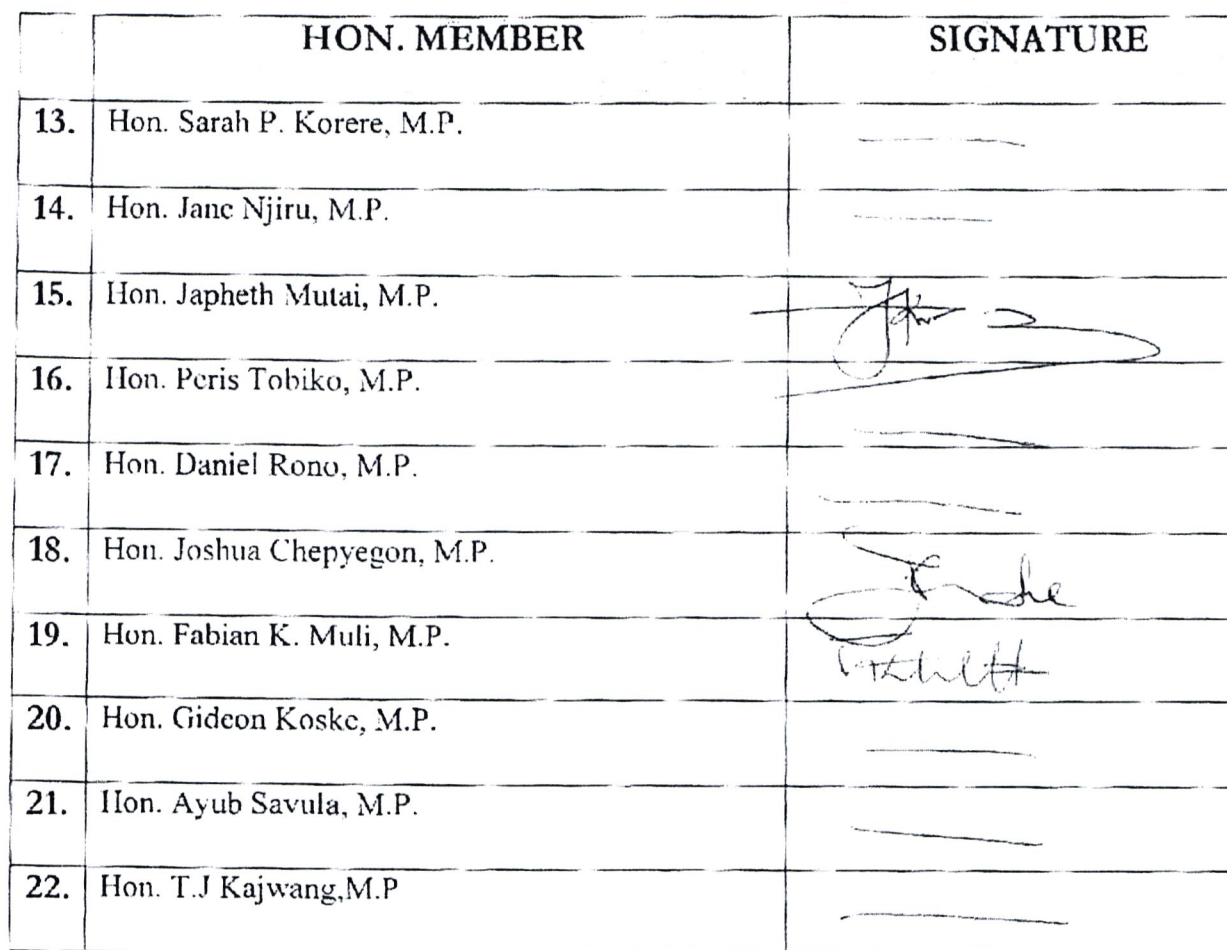 HON. MEMBER SIGNATURE
13. Hon. Sarah P. Korere, M.P.
14. Hon. Jane Njiru, M.P.
15. Hon. Japheth Mutai, M.P.
16. Hon. Peris Tobiko, M.P.
17. Hon. Daniel Rono, M.P.
18. Hon. Joshua Chepyegon, M.P.
19. Hon. Fabian K. Muli, M.P.
20. Hon. Gideon Koske, M.P.
21. Hon. Ayub Savula, M.P.
22. Hon. T.J Kajwang,M.P